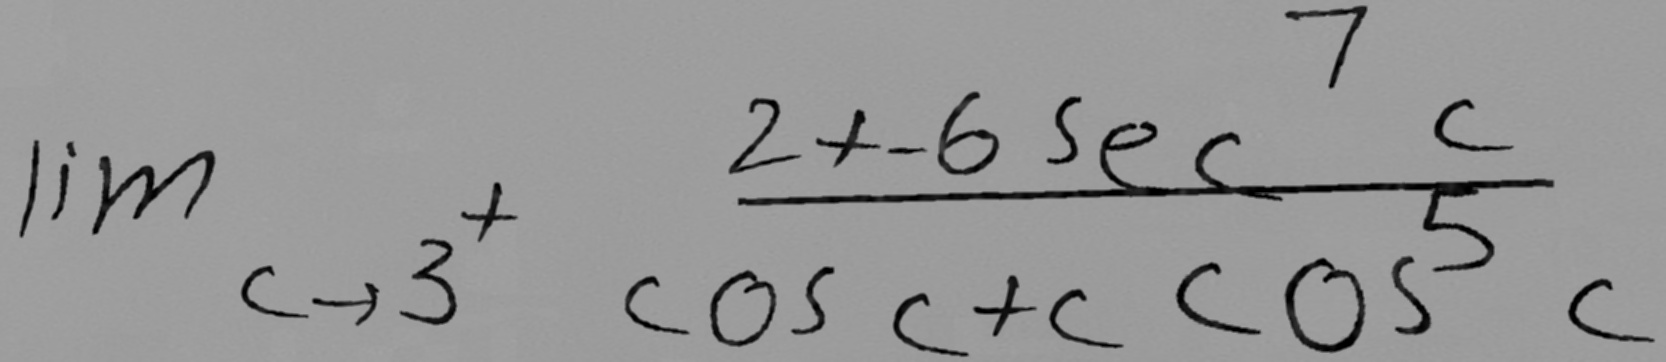 \lim_{c \to 3^+} \frac{2+-6 \sec^7 c}{\cos c + c \cos^5 c}